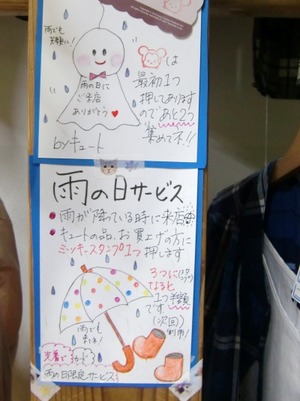 雨でも
笑顔に!
雨の日に
ご来店
ありがとう
byキュート
は
最初1つ
押してあります
ので あと2つ
集めて下!!
雨の日サービス
雨が降っている時に来店
キュートの品、お買上げの方に
ミッキースタンプ1つ押します
3つに
なると
1つ半額
です
(次回)
雨でも
雨の日限定サービス